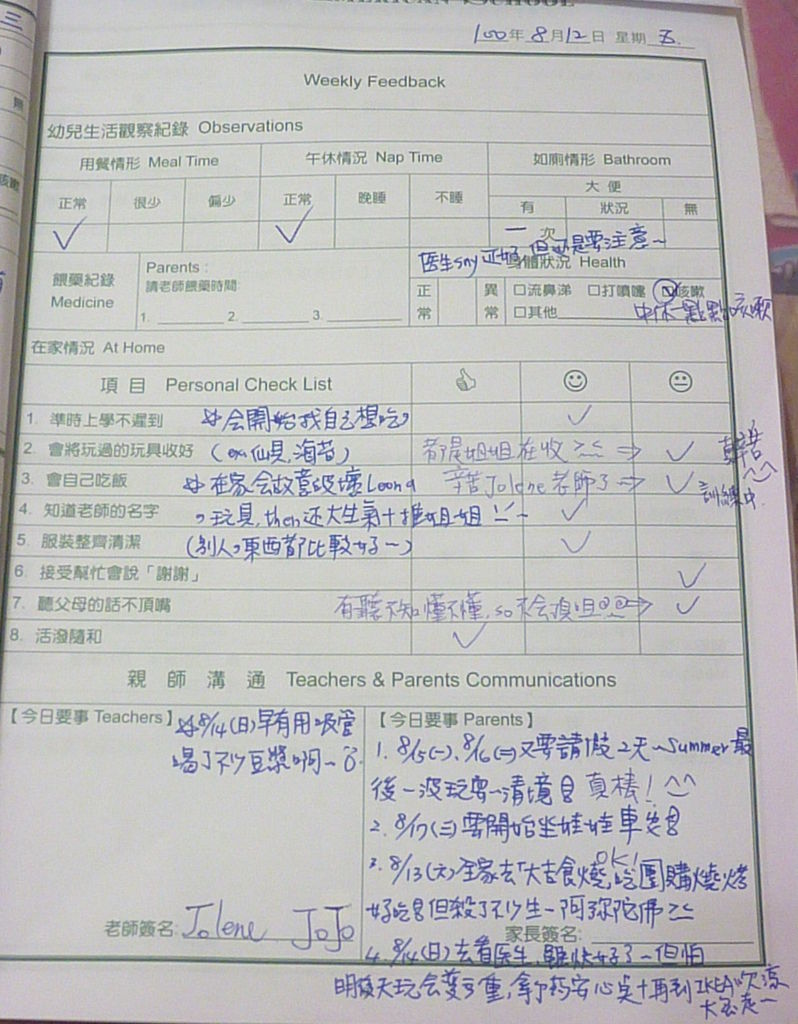 AMERICAN SCHOOL
100年 8月12日 星期 五.
Weekly Feedback
幼兒生活觀察紀錄 Observations
用餐情形 Meal Time 午休情況 Nap Time 如廁情形 Bathroom
正常 很少 偏少 正常 晚睡 不睡 大便
有 狀況 無
✓ ✓ 一 次
医生say 正好 但還是要注意~
餵藥紀錄 Medicine
Parents :
請老師餵藥時間:
1. 2. 3.
身體狀況 Health
正常 異常 □流鼻涕 □打噴嚏 ☑咳嗽
□其他 中休一點點咳嗽
在家情況 At Home
項 目 Personal Check List
1. 準時上學不遲到 会開始找自己想吃 ✓
2. 會將玩過的玩具收好 都是姐姐在收 >< ⇒ ✓
3. 會自己吃飯 在家会故意破壞 辛苦Jolene老師了 ⇒ ✓ 訓練中.
4. 知道老師的名字 玩具, then还大生氣+推姐姐 ✓
5. 服裝整齊清潔 (別人東西都比較好~) ✓
6. 接受幫忙會說「謝謝」 ✓
7. 聽父母的話不頂嘴 有聽不知懂不懂, so不会頂咀 ⇒ ✓
8. 活潑隨和 ✓
親 師 溝 通 Teachers & Parents Communications
【今日要事 Teachers】 8/14(日)早有用吸管
喝了不少豆漿啊~
老師簽名: Jolene JoJo
【今日要事 Parents】
1. 8/15(一), 8/16(二)又要請假2天~Summer最
後一波玩耍~清境 真棒! ^^
2. 8/17(三)要開始坐娃娃車 OK!
3. 8/13(六)全家去「大吉食燒」吃團購燒烤
好吃 但殺了不少生~阿弥陀佛 ><
家長簽名:
4. 8/14(日)去看医生, 雖快好了~但怕
明後天玩会變重, 拿了葯安心 +再到IKEA吹涼